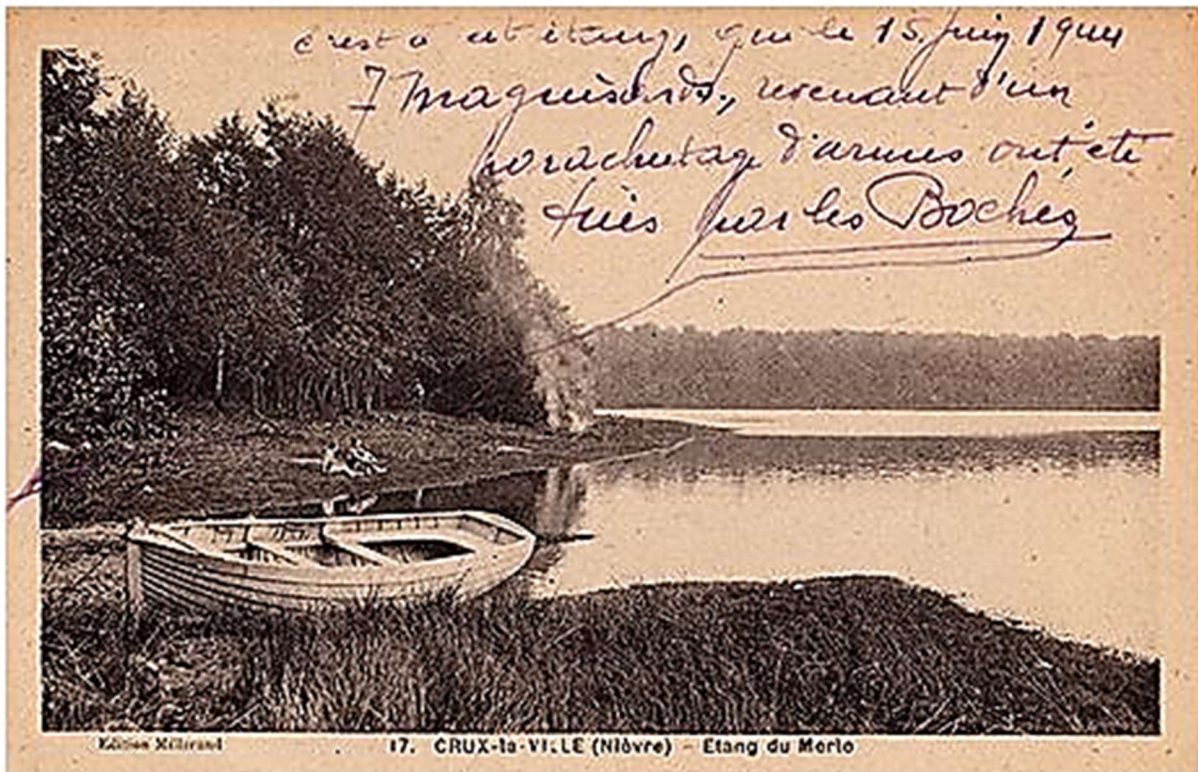 c'est à cet étang, que le 15 juin 1944
7 maquisards, revenant d'un
parachutage d'armes ont été
tués par les Boches
Edition Millerand
17. CRUX-la-VILLE (Nièvre) - Etang du Merle